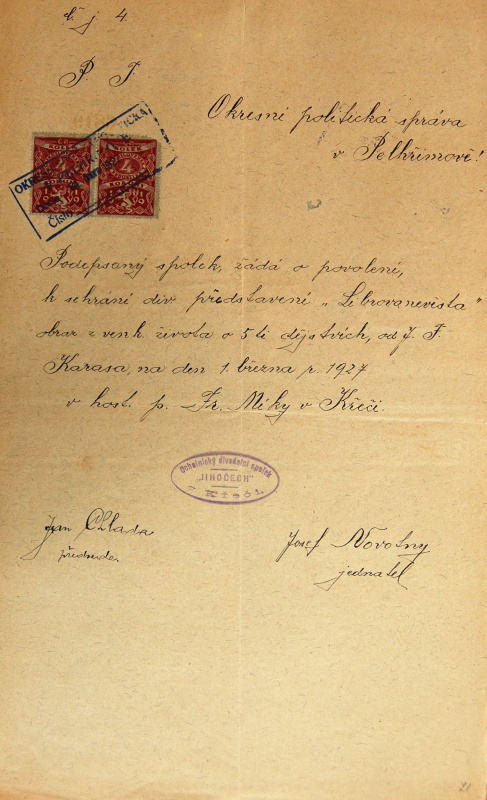 č. j 4.
P. T.
Okresní politická správa
v Pelhřimově!
KOLEK KOLEK
Podepsaný spolek, žádá o povolení,
k sehrání div představení „Librovanevěsta"
obraz z venk. života o 5ti dějstvích, od J. F.
Karasa, na den 1. března r. 1927
v host. p. Fr. Miky v Křeči.
Ochotnický divadelní spolek
„JIHOČECH"
v Křeči.
Jan Chlada
předseda.
Josef Novotný
jednatel
21